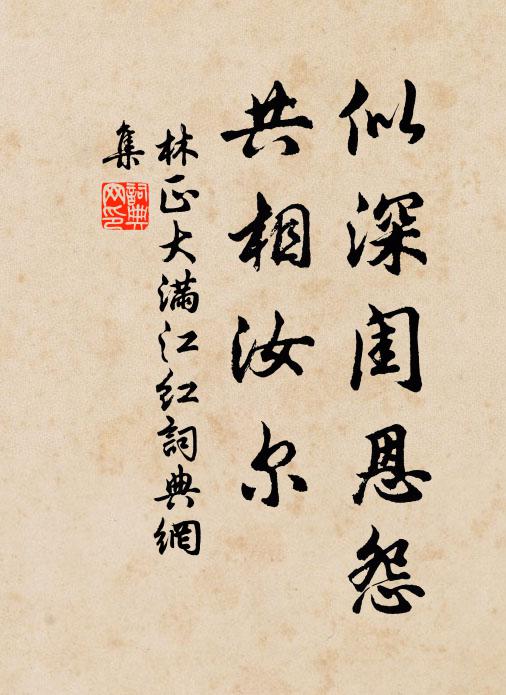 似深闺恩怨
共相汝尔
林正大满江红词典網
集
詞典網印